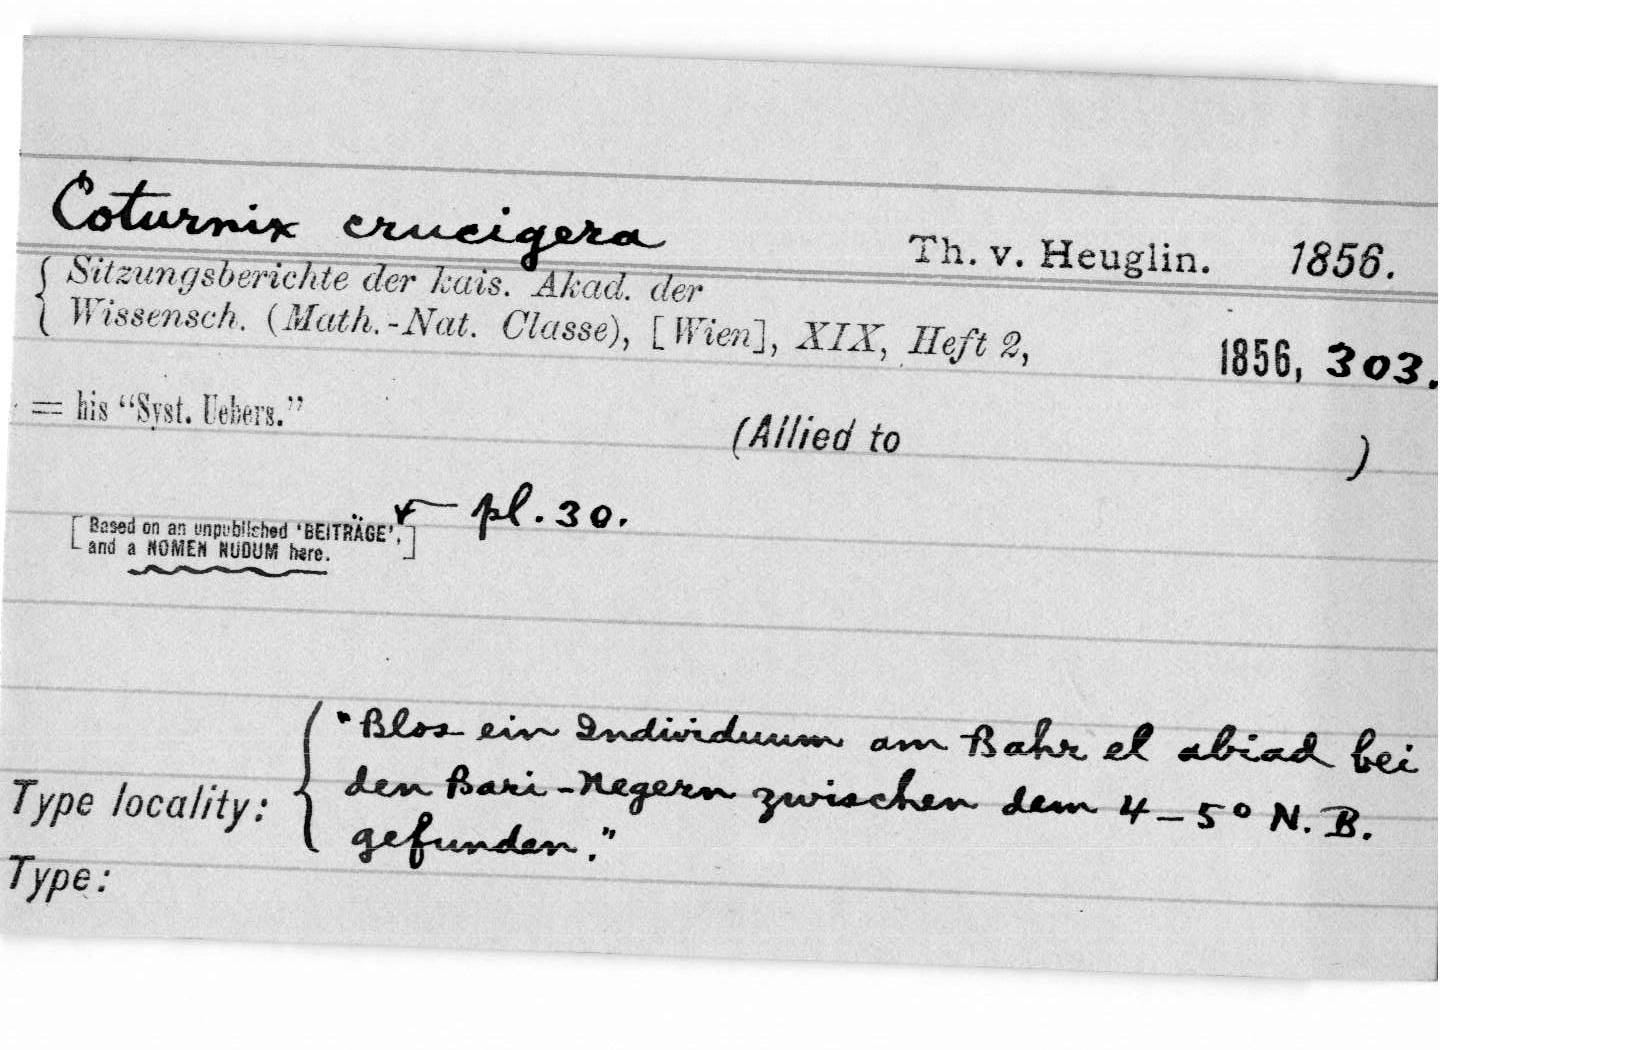 Coturnix crucigera Th. v. Heuglin. 1856.
Sitzungsberichte der kais. Akad. der
Wissensch. (Math.-Nat. Classe), [Wien], XIX, Heft 2, 1856, 303.
= his “Syst. Uebers.”
(Allied to )
pl. 30.
[Based on an unpublished ‘BEITRÄGE’,
and a NOMEN NUDUM here.]
"Blos ein Individuum am Bahr el abiad bei
den Bari-Negern zwischen dem 4–5° N. B.
Type locality: gefunden."
Type: